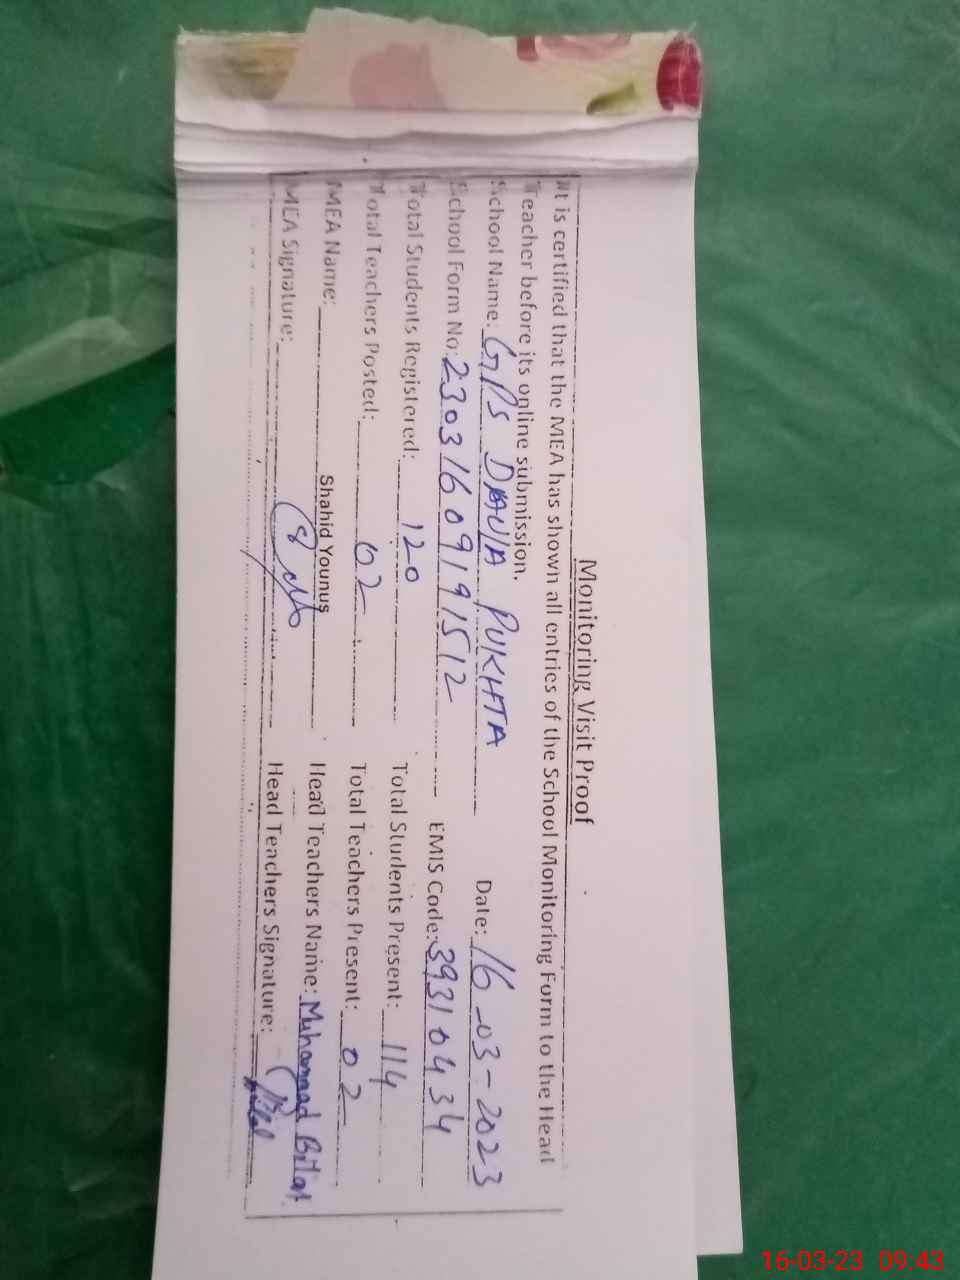 Monitoring Visit Proof
It is certified that the MEA has shown all entries of the School Monitoring Form to the Head
Teacher before its online submission.
School Name: GPS DAUJA PUKHTA Date: 16-03-2023
School Form No: 23031609191512 EMIS Code: 39310434
Total Students Registered: 120 Total Students Present: 114
Total Teachers Posted: 02 Total Teachers Present: 02
MEA Name: Shahid Younus Head Teachers Name: Muhammad Bilal
MEA Signature: Head Teachers Signature: Bilal
16-03-23 09:43